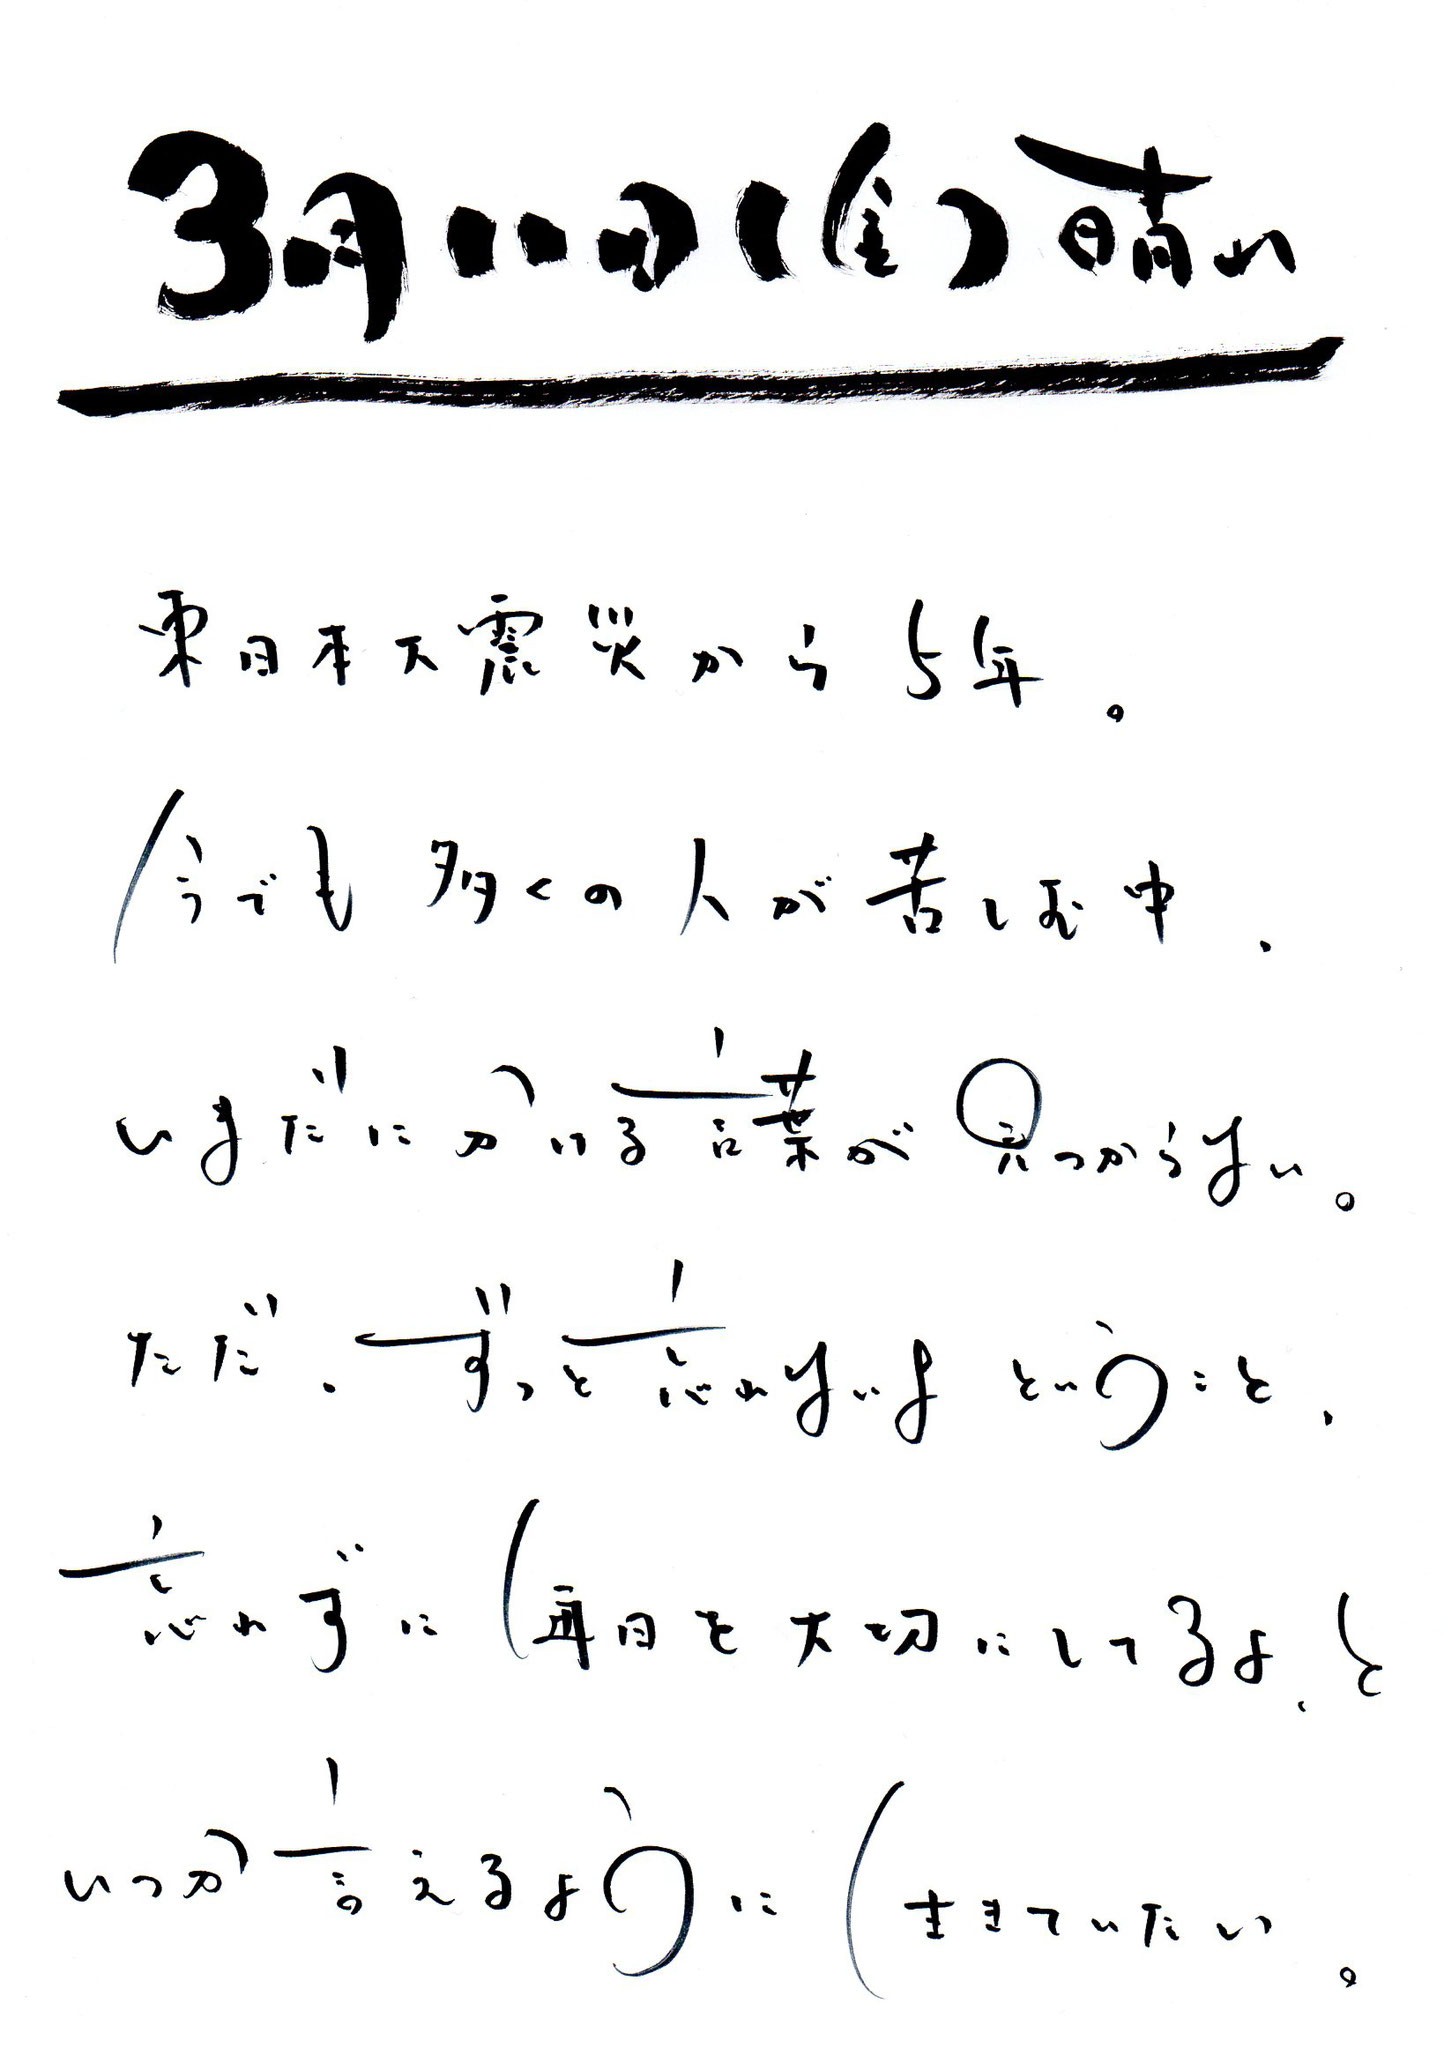 3月11日(金)晴れ
東日本大震災から5年。
今でも多くの人が苦しむ中、
いまだにかける言葉が見つからない。
ただ、ずっと忘れないよということ、
忘れずに毎日を大切にしてるよ、と
いつか言えるように生きていたい。